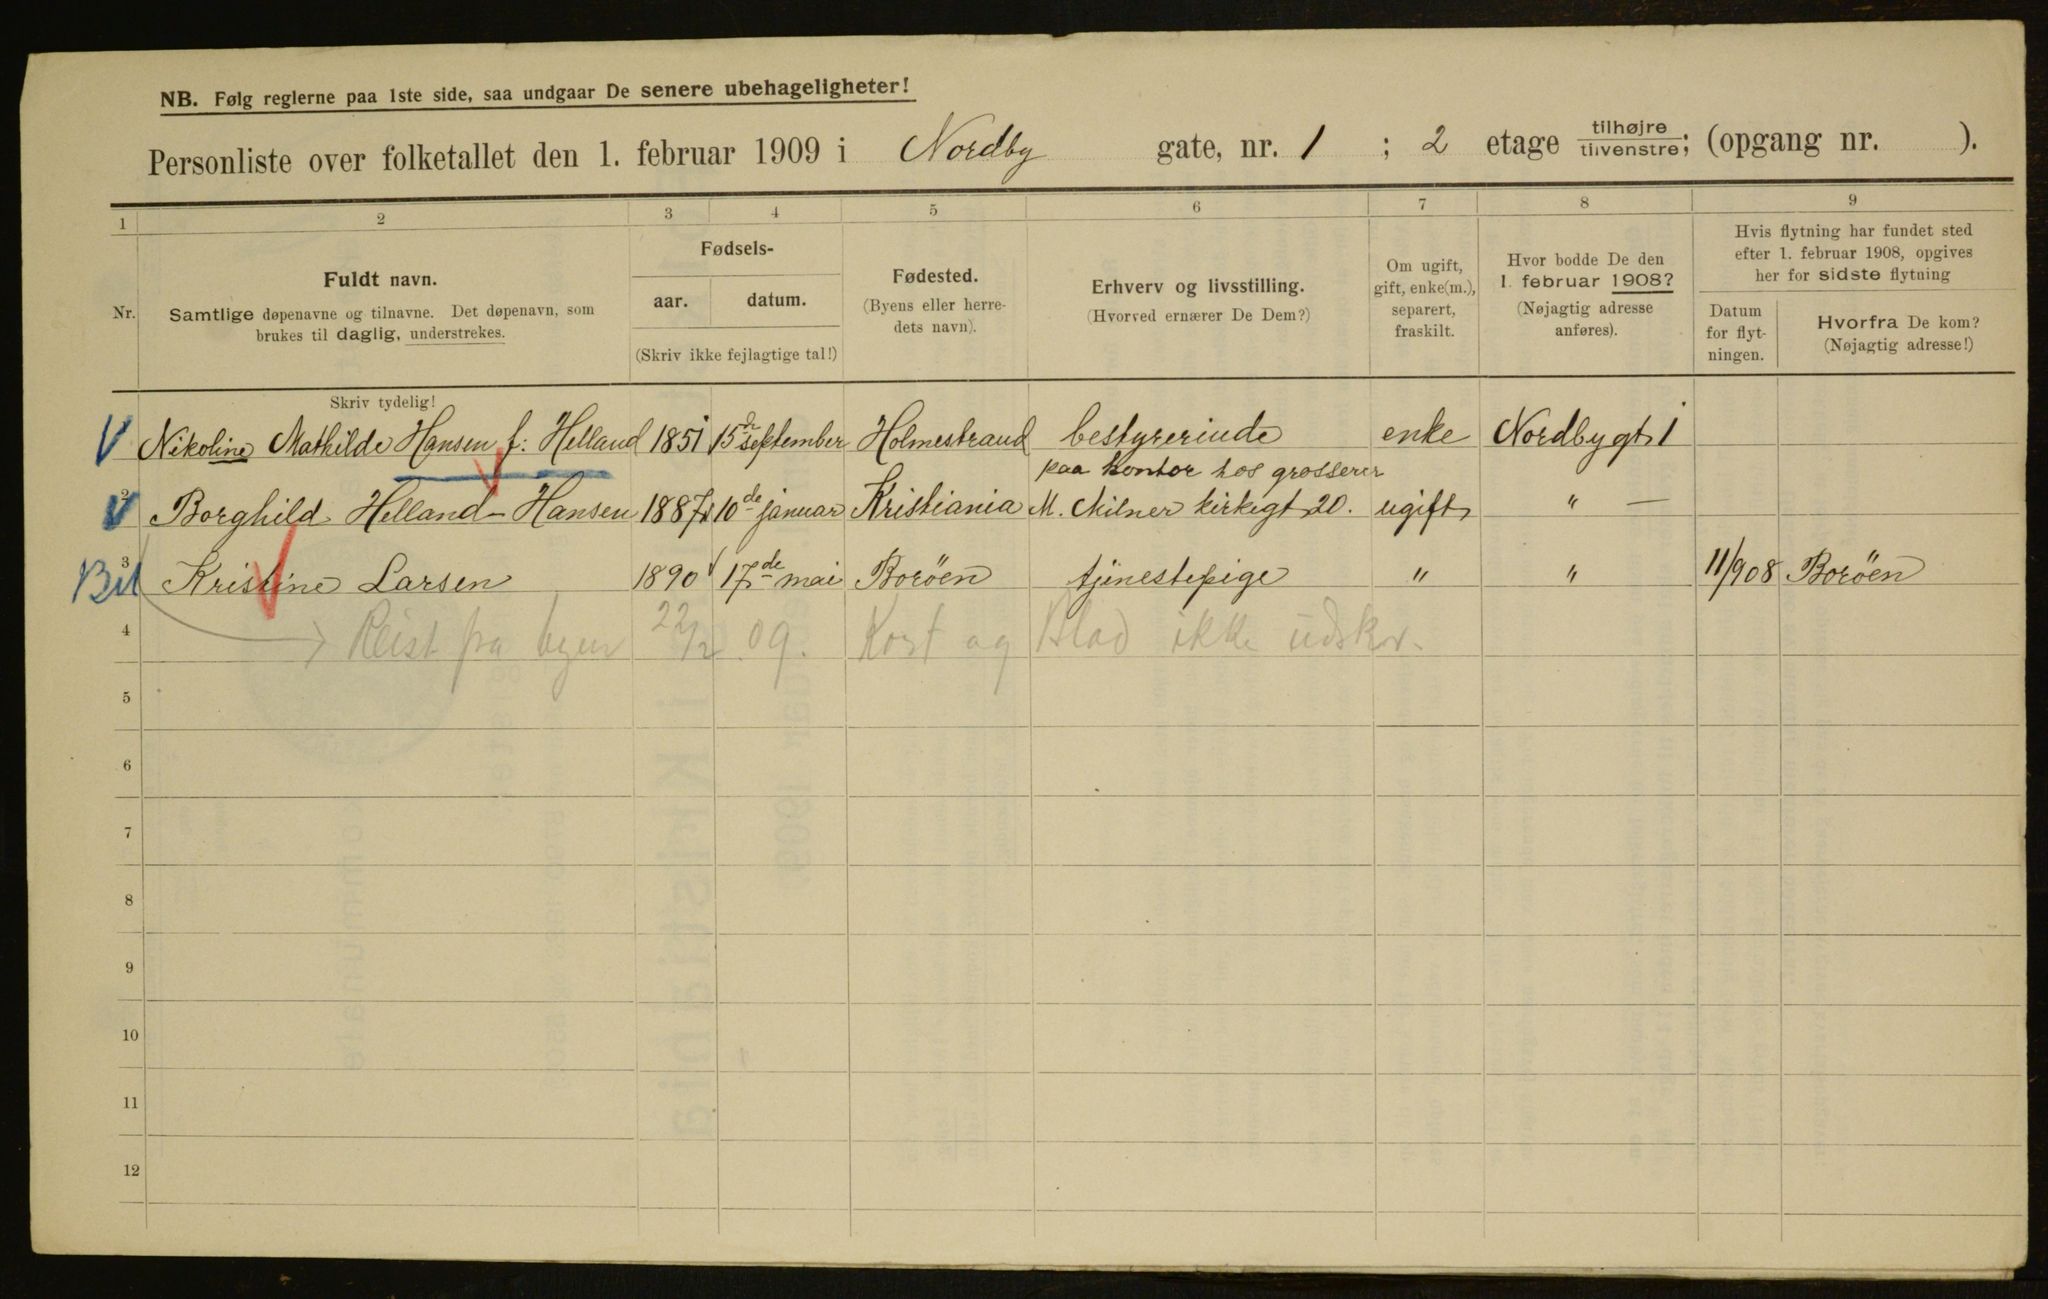 NB. Følg reglerne paa 1ste side, saa undgaar De senere ubehageligheter!
Personliste over folketallet den 1. februar 1909 i Nordby gate, nr. 1 ; 2 etage tilhøjre tilvenstre; (opgang nr. ).
1 2 3 4 5 6 7 8 9
Nr.
Fuldt navn.
Samtlige døpenavne og tilnavne. Det døpenavn, som
brukes til daglig, understrekes.
Fødsels-
aar. datum.
(Skriv ikke fejlagtige tal!)
Fødested.
(Byens eller herre-
dets navn).
Erhverv og livsstilling.
(Hvorved ernærer De Dem?)
Om ugift,
gift, enke(m.),
separert,
fraskilt.
Hvor bodde De den
1. februar 1908?
(Nøjagtig adresse
anføres).
Hvis flytning har fundet sted
efter 1. februar 1908, opgives
her for sidste flytning
Datum
for flyt-
ningen.
Hvorfra De kom?
(Nøjagtig adresse!)
Skriv tydelig!
Nikoline Mathilde Hansen f: Helland 1851 15 september Holmestrand bestyrerinde enke Nordbygt 1
paa kontor hos grosserer
2 Borghild Helland-Hansen 1887 10de januar Kristiania M. Milner kirkegt 20. ugift " —
3 Kristine Larsen 1890 17de mai Borøen tjenestepige " " 11/908 Borøen
4 Reist fra byen 22/2 09. Kort og Blad ikke udskr.
5
6
7
8
9
10
11
12